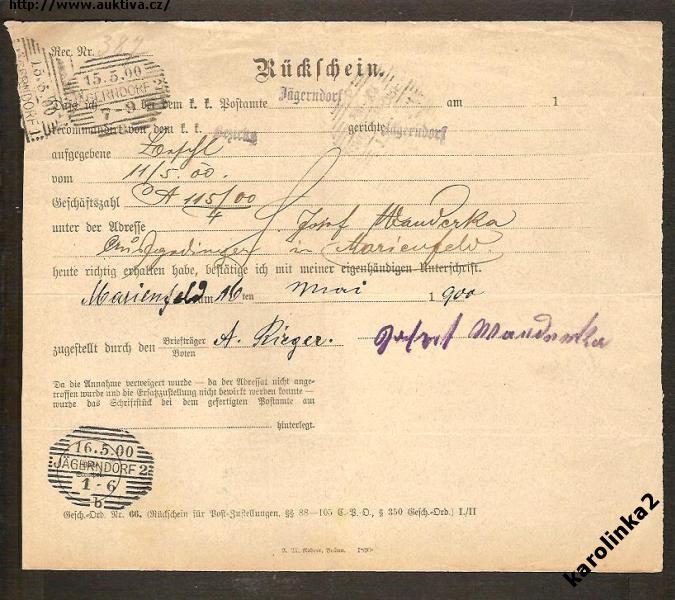 http://www.auktiva.cz/
Rec. Nr. 387
15.5.00
JÄGERNDORF 2
7-9
15.5.00
JÄGERNDORF
Rückschein.
Daß ich bei dem k. k. Postamte Jägerndorf am 1
recommandirt von dem k. k. Bezirks gerichte Jägerndorf
aufgegebene
vom 11/5.00.
Geschäftszahl A 115/00
4
unter der Adresse Josef Wanderka
Ausgedinger in Marienfeld
heute richtig erhalten habe, bestätige ich mit meiner eigenhändigen Unterschrift.
Marienfeld am 16 ten Mai 1900
zugestellt durch den Briefträger Boten A. Rieger. Josef Wanderka
Da die Annahme verweigert wurde — da der Adressat nicht ange-
troffen wurde und die Ersatzzustellung nicht bewirkt werden konnte —
wurde das Schriftstück bei dem gefertigten Postamte am
hinterlegt.
16.5.00
JÄGERNDORF 2
1-6
b
Gesch.-Ord. Nr. 66. (Rückschein für Post-Zustellungen, §§ 88—105 C.-P.-O., § 350 Gesch.-Ord.) I./II
R. M. Rohrer, Brünn.
karolinka2